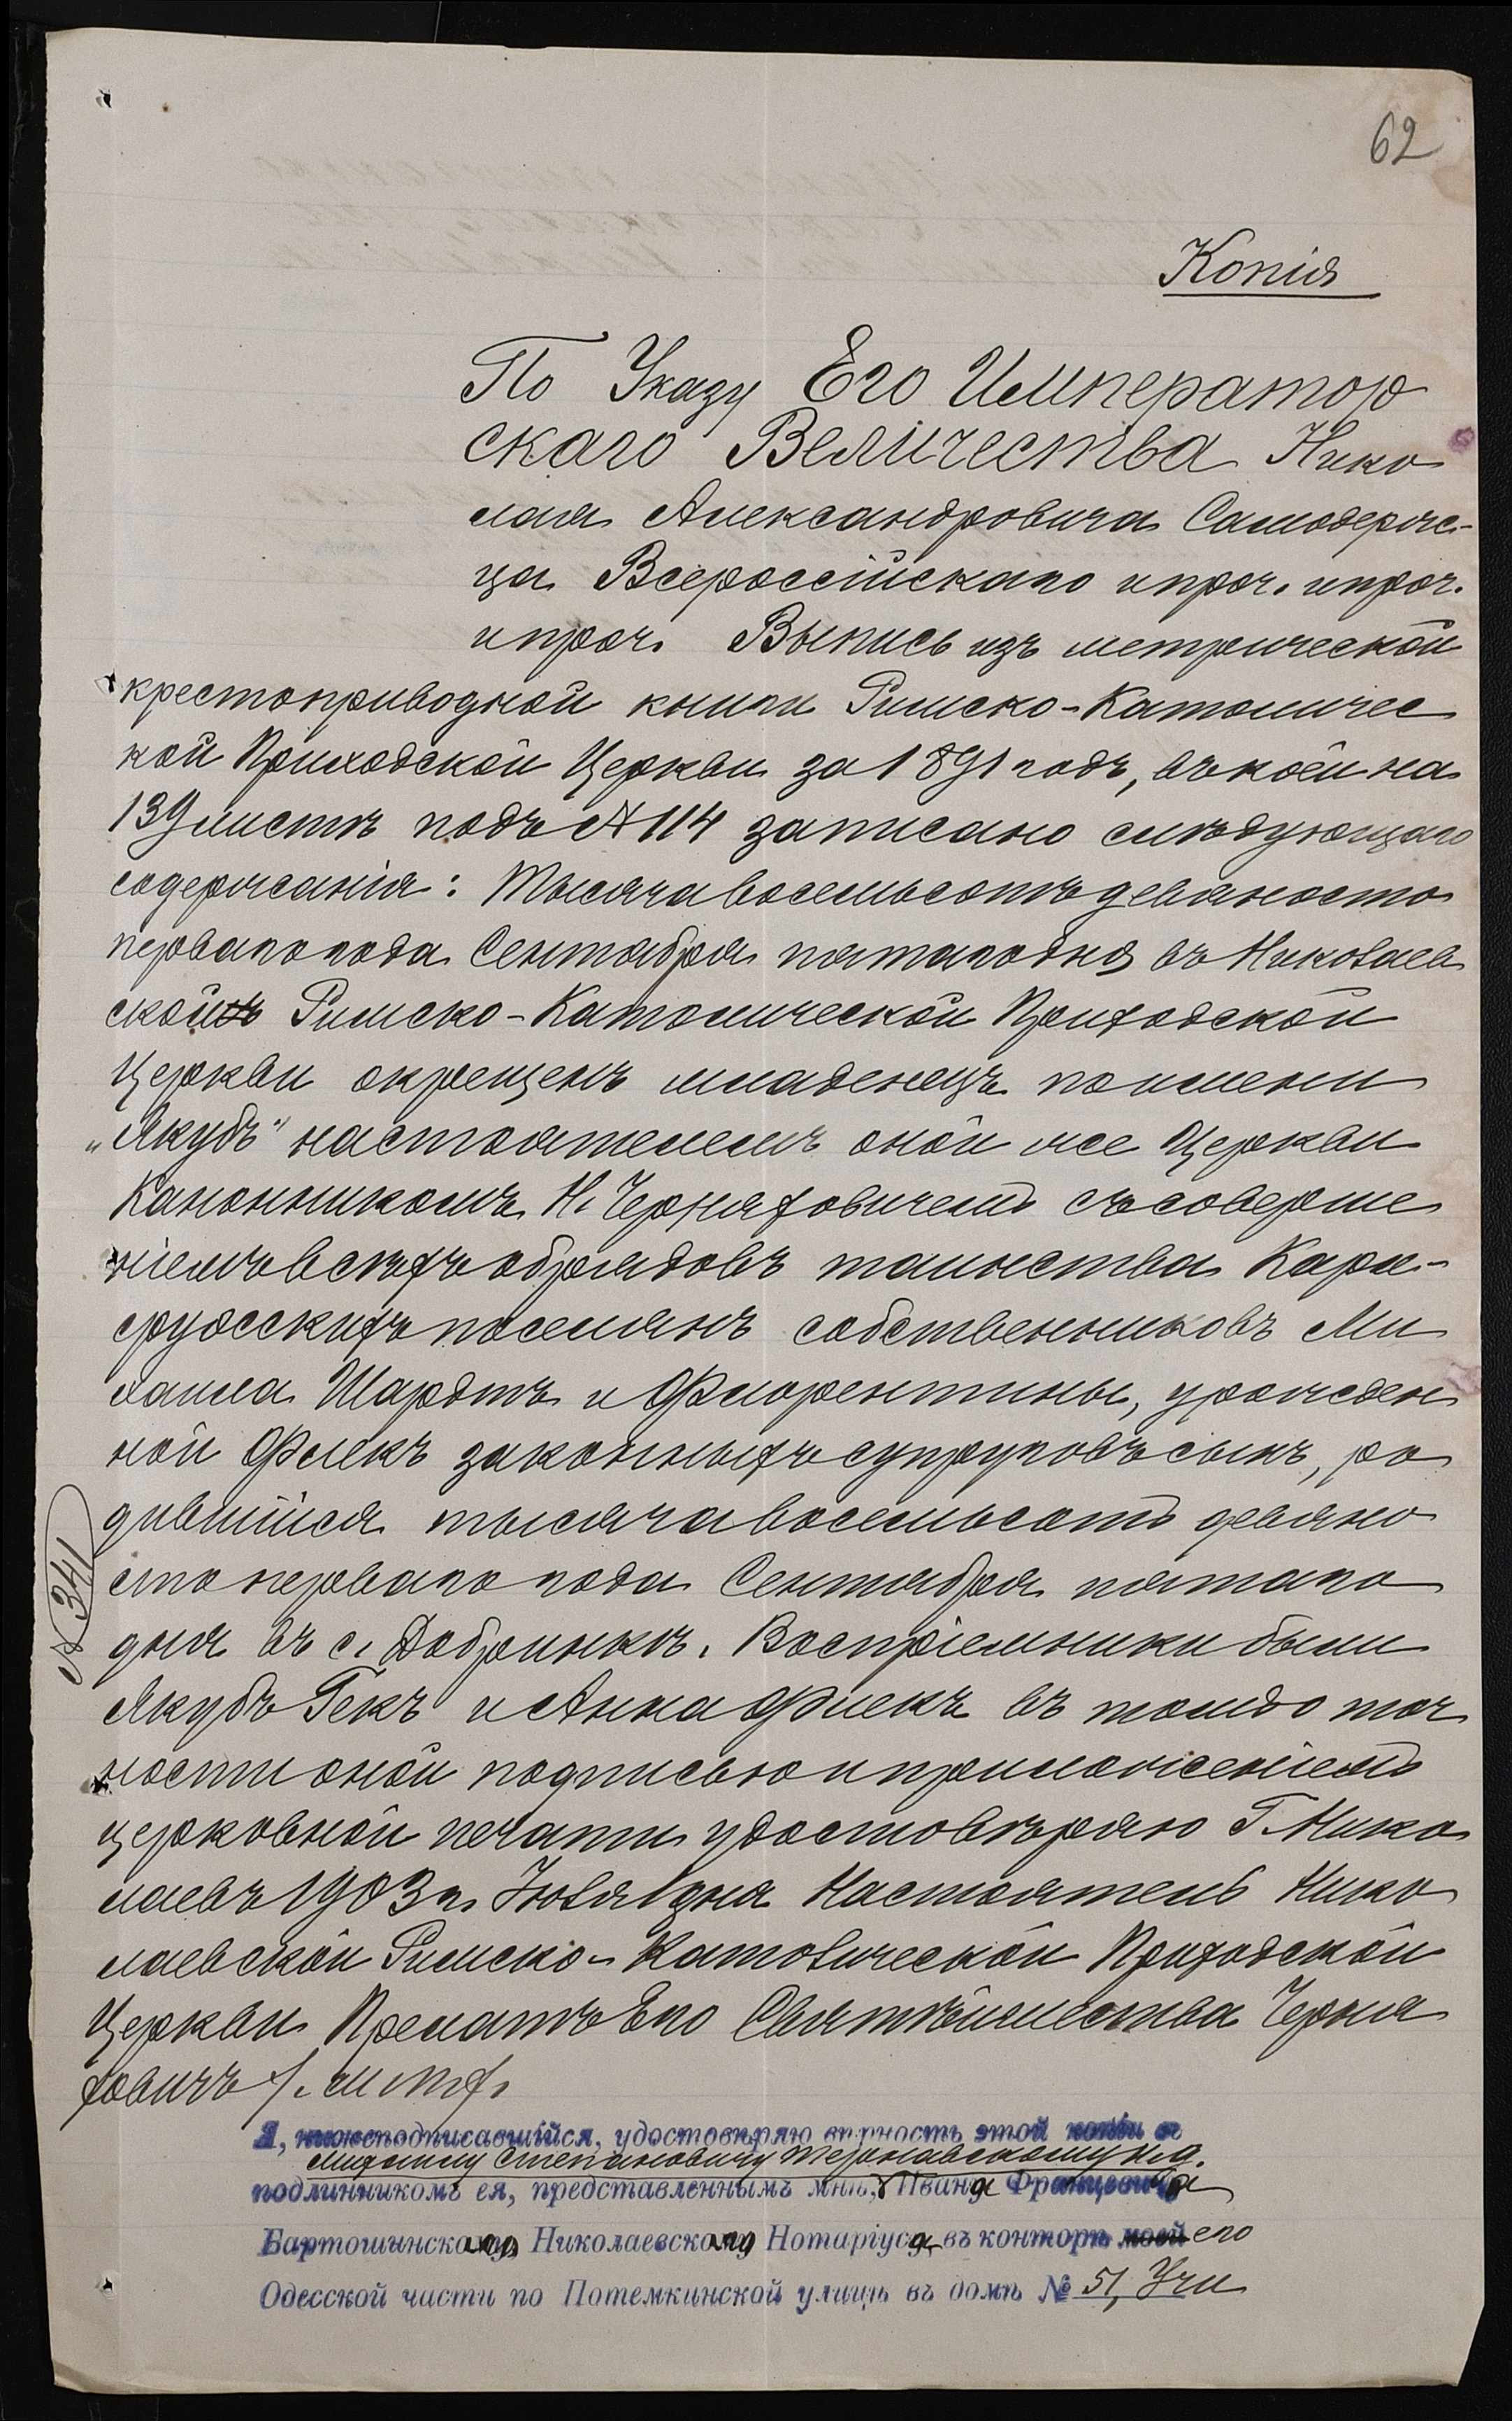 62
Копія
По Указу Его Император
скаго Величества Нико
лая Александровича Самодерж-
ца Всероссійскаго и проч. и проч.
и проч. Выпись изъ метрической
крестоприводной книги Римско-Католичес
кой Приходской Церкви за 1891 годъ, въ коей на
139 листѣ подъ № 114 записано слѣдующаго
содержанія: Тысяча восемьсотъ девяносто
перваго года Сентября пятаго дня въ Николаев
ской Римско-Католической Приходской
Церкви окрещенъ младенецъ по имени
„Якубъ" настоятелемъ оной же Церкви
Каноникомъ Н. Черняховичемъ съ соверше
ніемъ всѣхъ обрядовъ таинства Карл-
сруэсскихъ поселянъ собственниковъ Ми
хаила Шардтъ и Флорентины, урожден
ной Флекъ законныхъ супруговъ сынъ, ро
дившійся тысяча восемьсотъ девяно
сто перваго года Сентября пятаго
дня въ с. Добринкѣ. Воспріемники были
№ 341
Якубъ Гекъ и Анна Флекъ въ томъ точ
ности оной подписью и приложеніемъ
церковной печати удостовѣряю Г. Нико
лаевъ 1903 г. Іюля 1 дня Настоятель Нико
лаевской Римско-Католической Приходской
Церкви Прелатъ Его Святѣйшества Черня
ховичъ
Я, нижеподписавшійся, удостовѣряю вѣрность этой копіи съ
Михаилу Степановичу Тернавскому и. д.
подлинникомъ ея, представленнымъ мнѣ, Ивана Францевича
Бартошинскаго Николаевскаго Нотаріуса, въ конторѣ моей его
Одесской части по Потемкинской улицѣ въ домѣ № 51, Учи